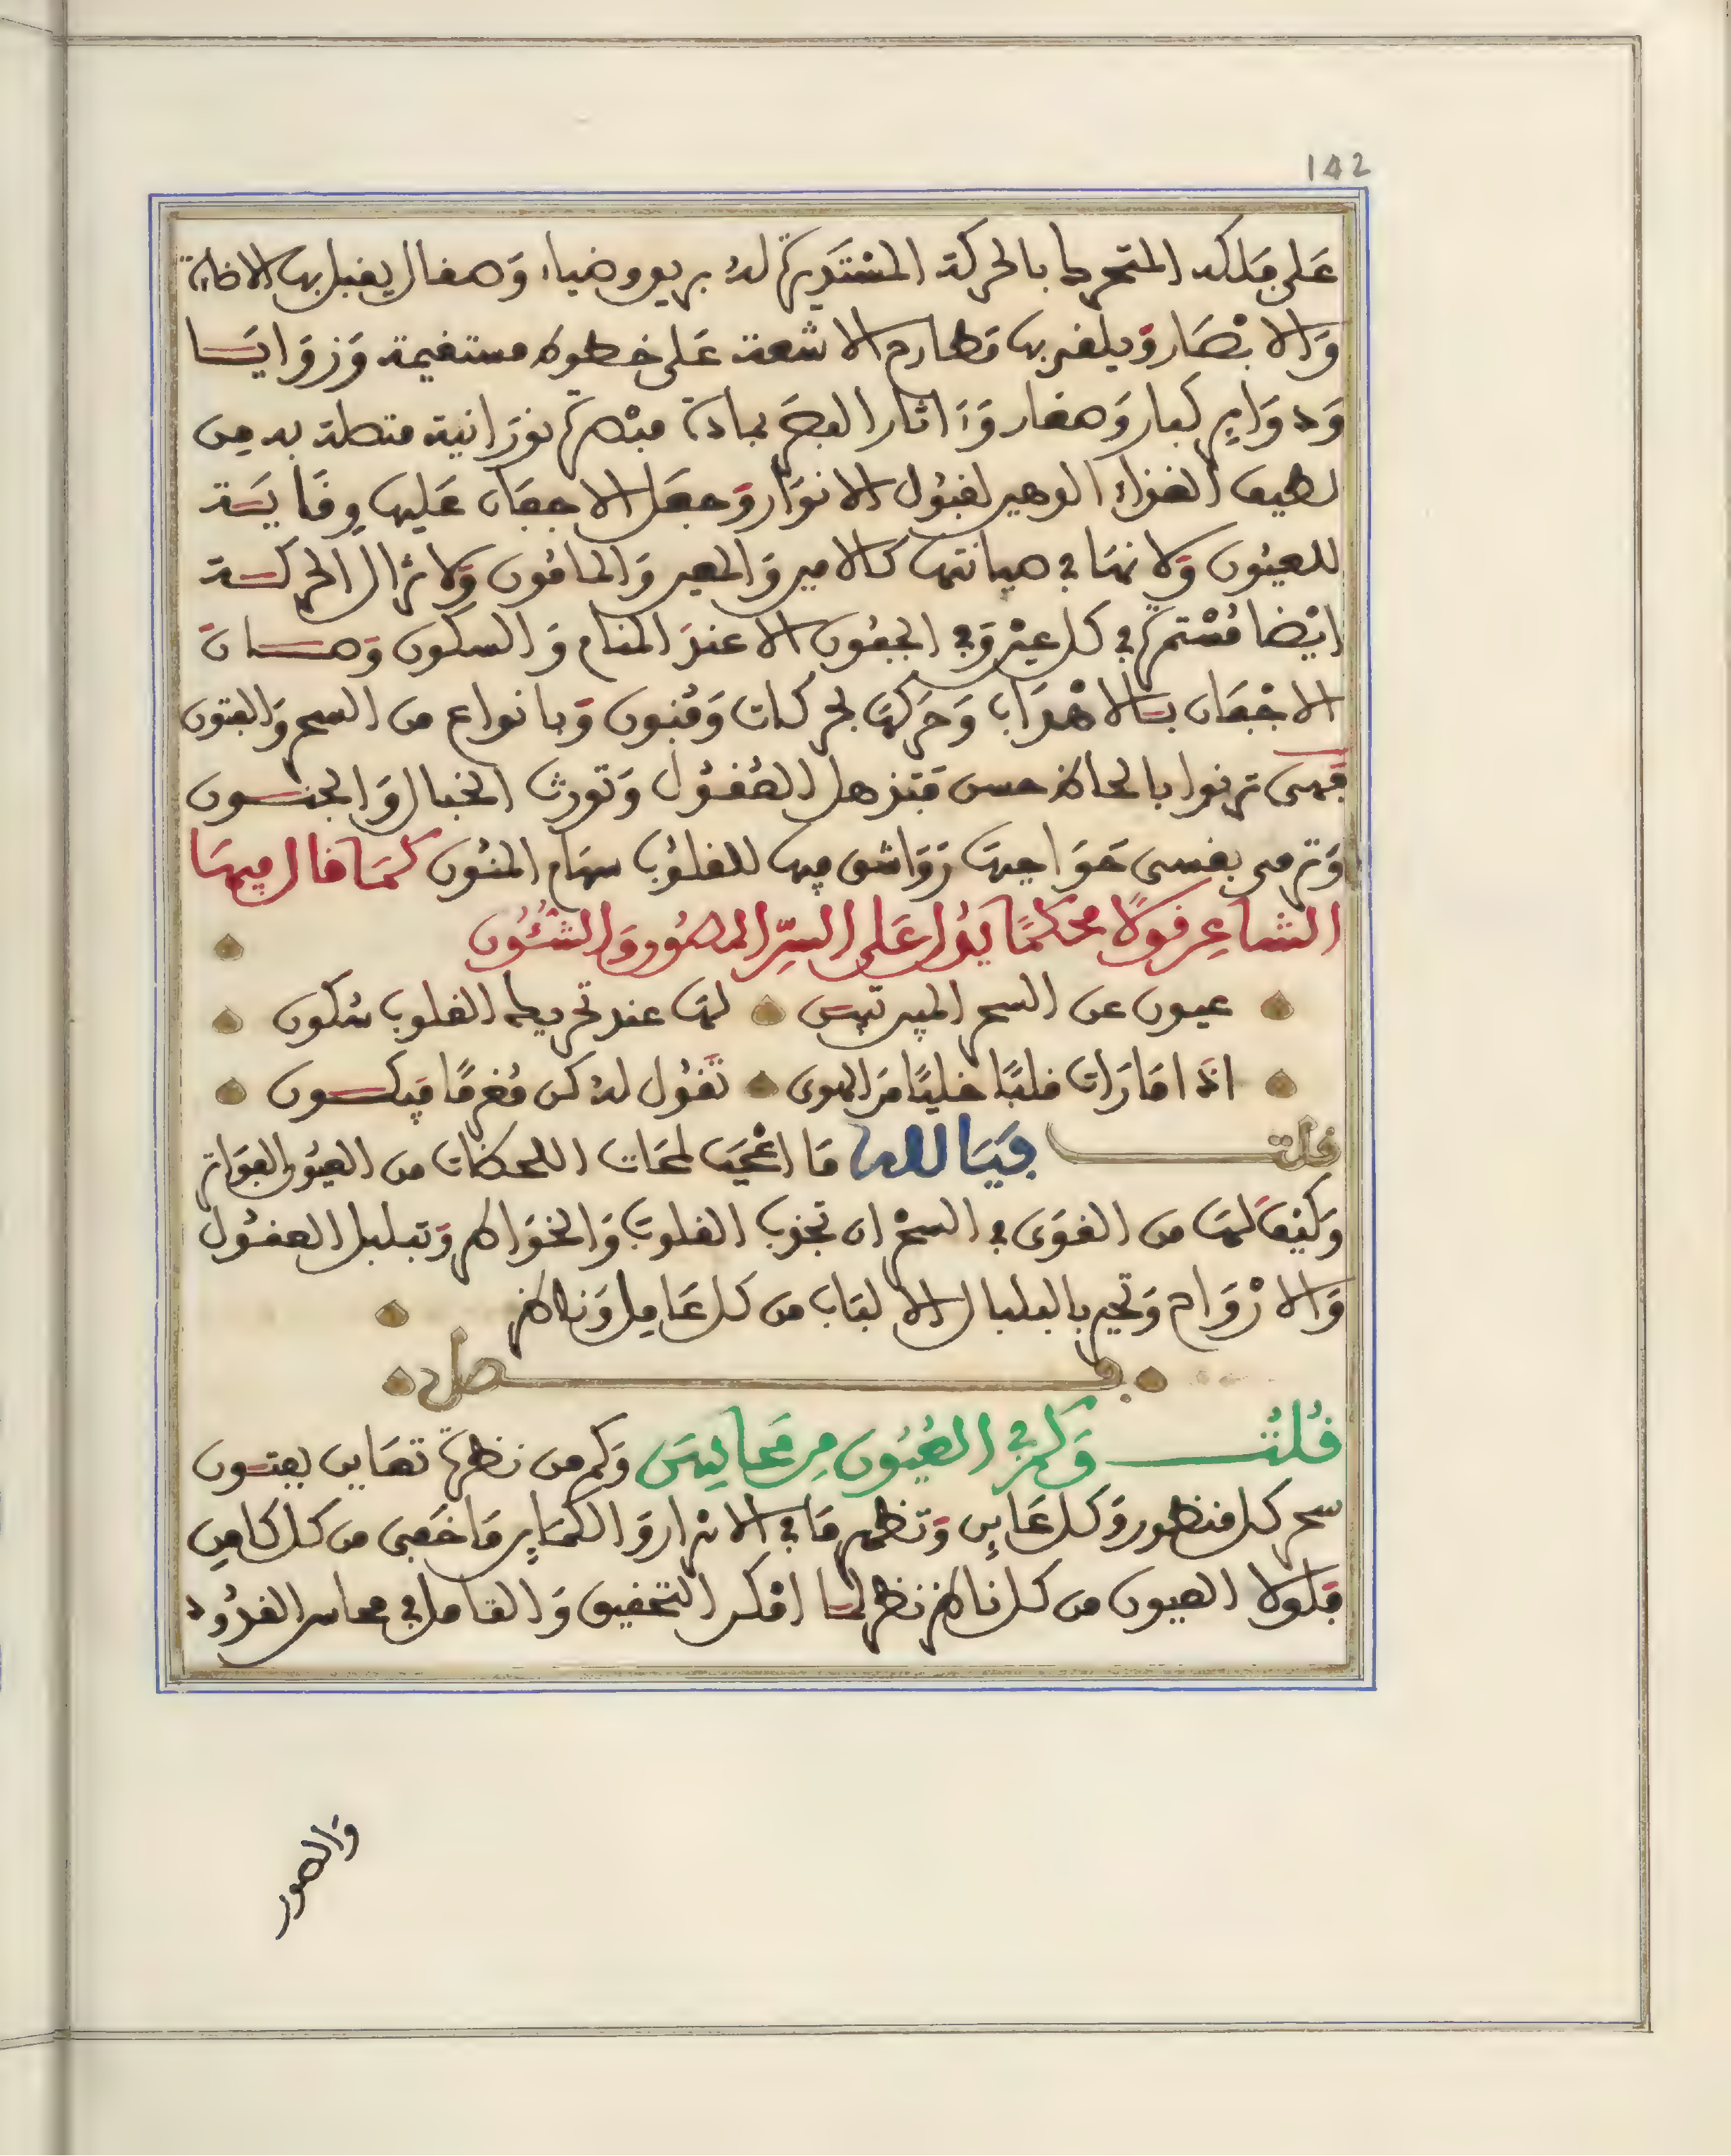 142
عَلى فلكه المتحرك بالحركة المسْتَديرة له بريق وضياء وَصقال يقبل بها الاضاءة
وَالابْصَار وَيلقى بها مَطارح الاشعة عَلى خطوط مستقيمة وَزوَايَا
وَدوَاير كبار وَصغار وَءَاثار البصَر بمادة مبْصرة نورَانية متصلة به من
لطيف الغذاء الدهير لقبُول الانوَار وَجعَل الاجفَان عَليها وِقَايَة
للعيُون وَلانهَا في صيانتها كالامير وَالمعير وَالمامُون وَلا تزال الحركة
ايْضا مُسْتمرة في كل عيْن وَفي الجفُون الا عندَ المنام وَالسكون وَصان
الاجْفَان بالاهْدَاب وَحَركهَا بحركات وَفُنون وَبانواع من السحر وَالفتون
فَهى ترنوا بالحاظ حسن فتذهل العُقُول وَتورث الخبال وَالجنون
وَترمى بقسى حَوَاجبهَا رَوَاشق فيها للقلوُب سهَام المنُون كمَا قال فيهَا
الشاعِر قولًا محكمًا يَدُل عَلى السِّر المصُور وَالشُئُون
عيون عن السحر المبين تبين لهَا عند تحريك القلوب سُكون
اذَا مَا رَات قلبًا خليًا مَن الهوى تقُول له كن مُغرمًا فيَكون
قلت فَيَا لله مَا اعْجَب لمحَات اللحظات من العيُون الفوَاتر
وَكيْف لهَا من القوَى في السحْر ان تجذب القلوبَ وَالخوَاطر وَتبلبل العقُول
وَالارْوَاح وَتحير بالبلبال الالبَاب من كل عَاقل وَناظر
فصل
قُلتُ وَكم في العُيُون مِن مَحَاسِن وَكم من نظرة تعَاين بعيون
سحر كل منظور وَكل عَاين وَتظهر مَا في الاسْرار وَالضمَاير مَا خفى من كل كامن
فلولا العيون من كل ناظر نظر لما امْكن التحقيق وَالتامل في محاسن القدُود
وَالصور